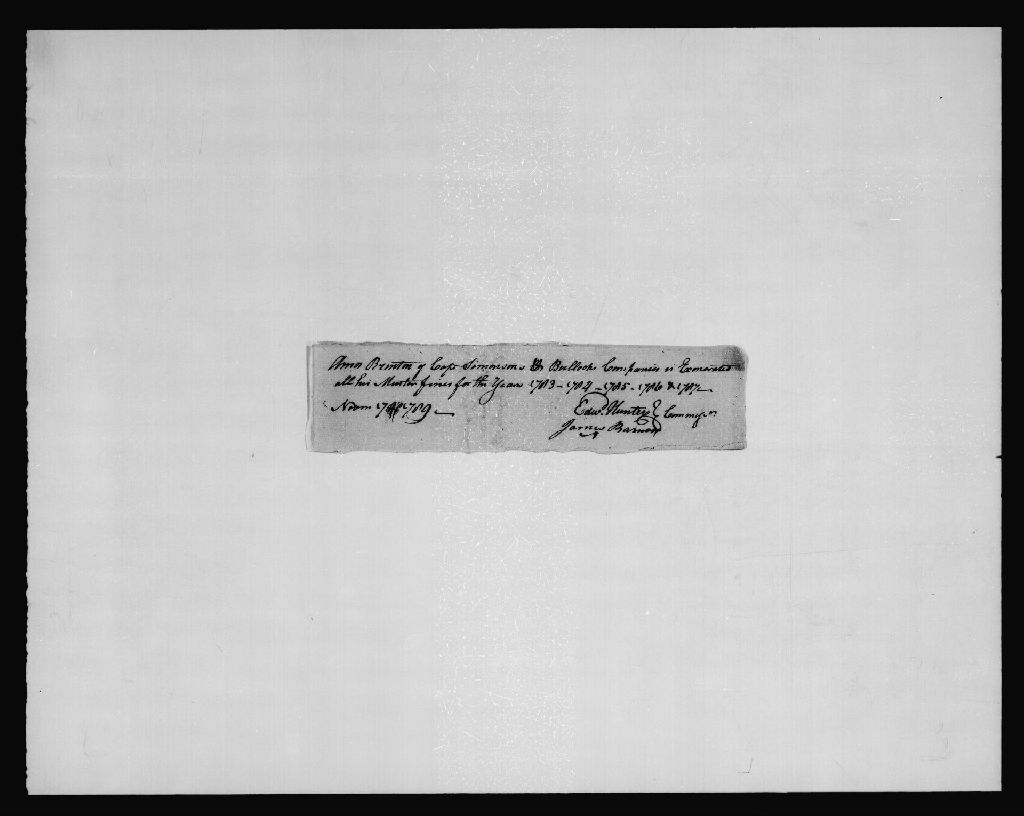 Amos Brinton of Capt Simmesons & Bullocks Companies is Exonerated
all his Muster fines for the Years 1783 - 1784 - 1785 - 1786 & 1787 —
1789 —
Edwd. Hunter } Commyrs
James Barnard